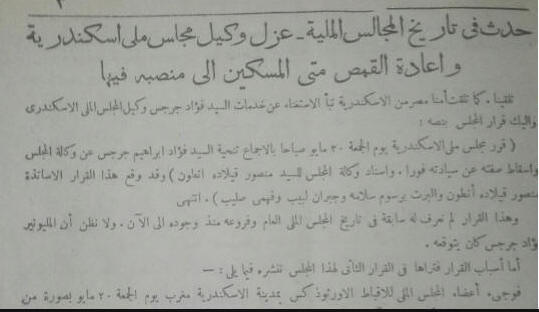 حدث فى تاريخ المجالس الملية - عزل وكيل مجلس ملى اسكندرية
واعادة القمص متى المسكين الى منصبه فيها
تلقينا . كما تلقت أمنا مصر من الاسكندرية نبأ الاستغناء عن خدمات السيد فؤاد جرجس وكيل المجلس الملى الاسكندرى
واليك قرار المجلس بنصه :
( قرر مجلس ملى الاسكندرية يوم الجمعة ٢٠ مايو صباحا بالاجماع تنحية السيد فؤاد ابراهيم جرجس عن وكالة المجلس
واسقاط صفته عن سيادته فورا . واسناد وكالة المجلس للسيد منصور قيلاده انطون ) وقد وقع هذا القرار الاساتذة
منصور قيلاده أنطون والبرت برسوم سلامه وجبران لبيب وفهمى صليب ) . انتهى
وهذا القرار لم نعرف له سابقة فى تاريخ المجلس الملى العام وفروعه منذ وجوده الى الآن . ولا نظن أن المليونير
فؤاد جرجس كان يتوقعه .
أما أسباب القرار فتراها فى القرار الثانى لهذا المجلس ننشره فيما يلى : —
فوجىء أعضاء المجلس الملى للاقباط الاورثوذكس بمدينة الاسكندرية مغرب يوم الجمعة ٢٠ مايو بصورة من